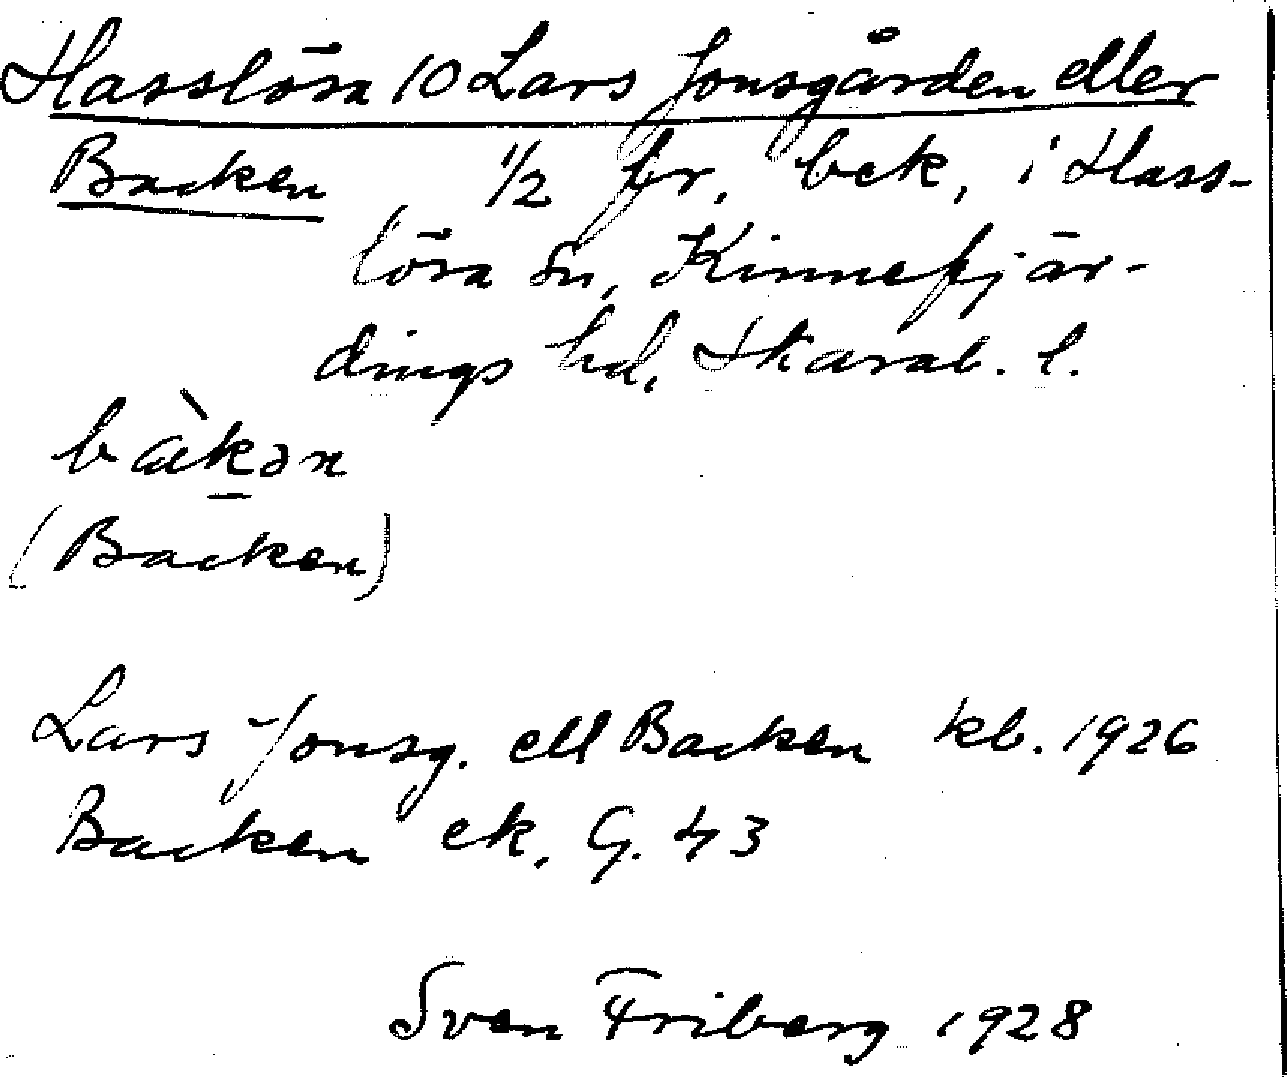 Hasslösa 10 Lars Jonsgården eller
Backen ½ fr, bek, i Hass-
lösa sn, Kinnefjär-
dings hd, Skarab. l.
bàkən
(Backen)
Lars Jonsg. ell Backen kb. 1926
Backen ek. G. 43
Sven Friberg 1928